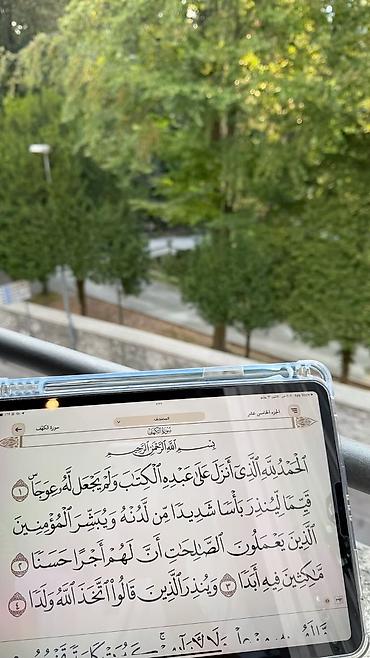 الجزء الخامس عشر
المصحف
سورة الكهف
سورة الكهف
بِسْمِ ٱللَّهِ ٱلرَّحْمَٰنِ ٱلرَّحِيمِ
ٱلْحَمْدُ لِلَّهِ ٱلَّذِىٓ أَنزَلَ عَلَىٰ عَبْدِهِ ٱلْكِتَٰبَ وَلَمْ يَجْعَل لَّهُۥ عِوَجَاۜ ١
قَيِّمًا لِّيُنذِرَ بَأْسًا شَدِيدًا مِّن لَّدُنْهُ وَيُبَشِّرَ ٱلْمُؤْمِنِينَ
ٱلَّذِينَ يَعْمَلُونَ ٱلصَّٰلِحَٰتِ أَنَّ لَهُمْ أَجْرًا حَسَنًا ٢
مَّٰكِثِينَ فِيهِ أَبَدًا ٣ وَيُنذِرَ ٱلَّذِينَ قَالُوا۟ ٱتَّخَذَ ٱللَّهُ وَلَدًا ٤